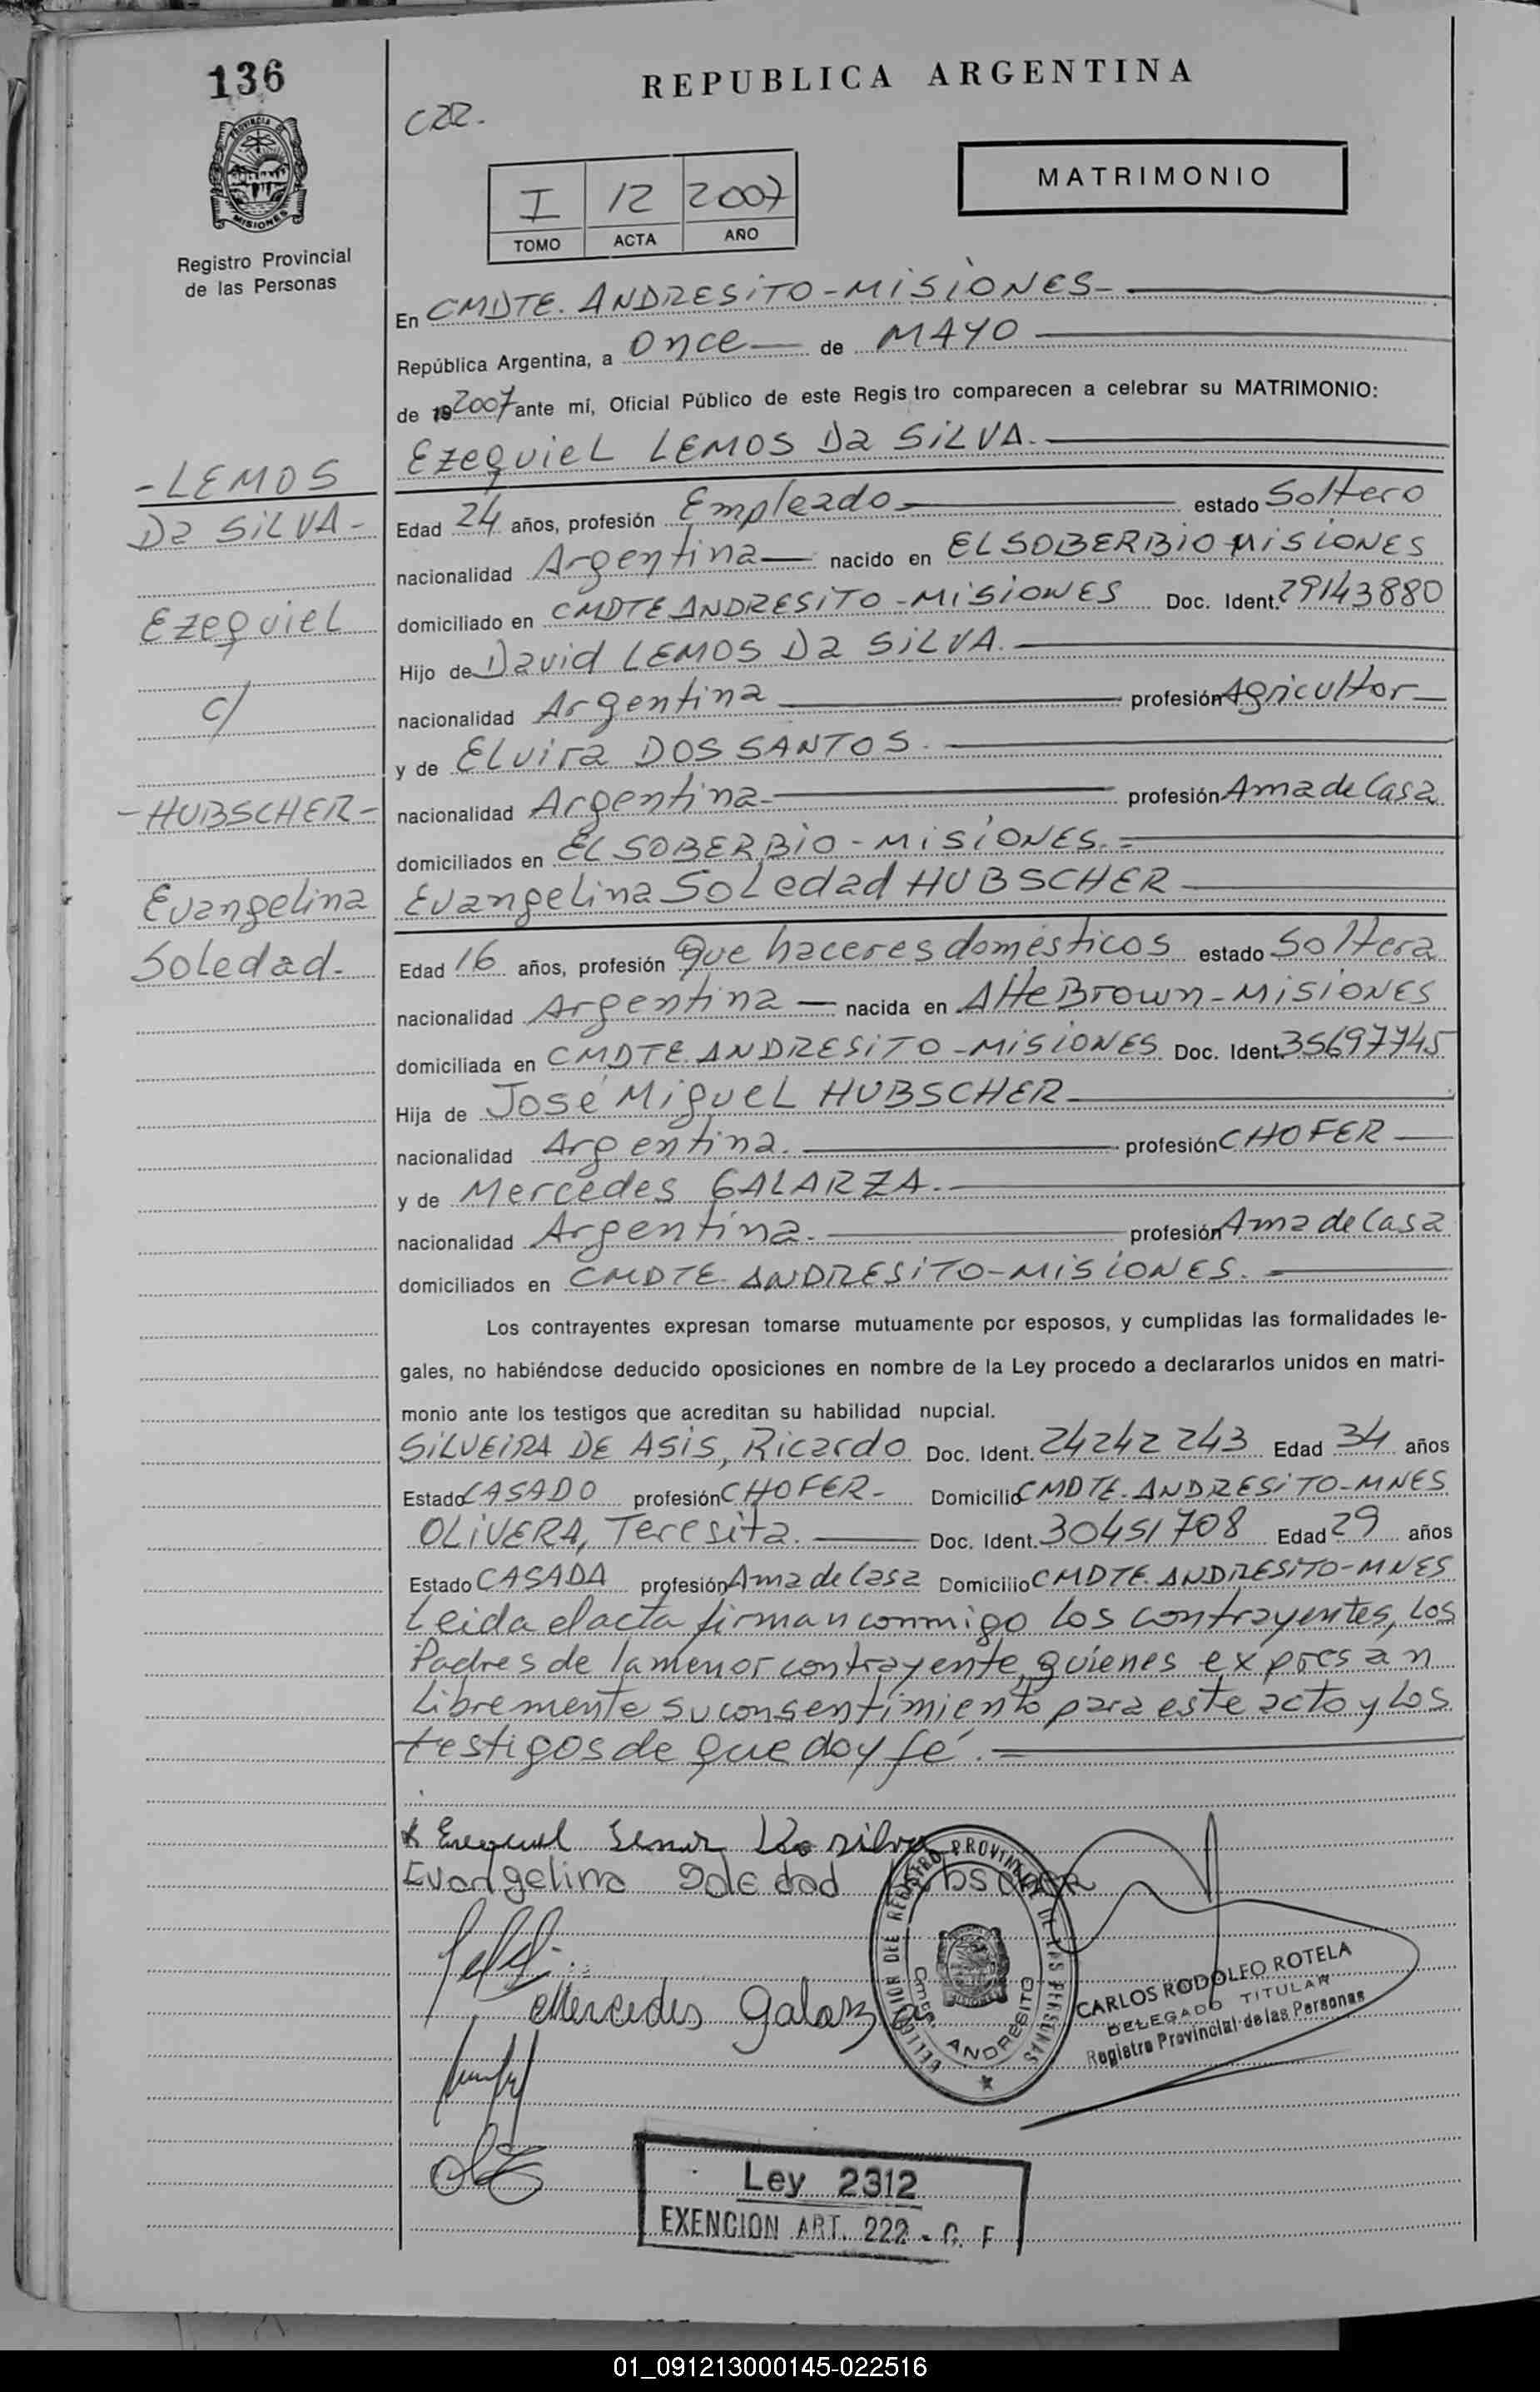 136
REPUBLICA ARGENTINA
PROVINCIA DE
MISIONES
Registro Provincial
de las Personas
I 12 2007
TOMO ACTA AÑO
MATRIMONIO
En CMDTE. ANDRESITO - MISIONES -
República Argentina, a Once de MAYO
de 19 2007 ante mí, Oficial Público de este Regis tro comparecen a celebrar su MATRIMONIO:
Ezequiel LEMOS Da SILVA.
- LEMOS
Da SILVA -
Ezequiel
c/
- HUBSCHER -
Evangelina
Soledad -
Edad 24 años, profesión Empleado - estado Soltero
nacionalidad Argentina nacido en EL SOBERBIO MISIONES
domiciliado en CMDTE ANDRESITO - MISIONES Doc. Ident. 29143880
Hijo de David LEMOS Da SILVA.
nacionalidad Argentina profesión Agricultor
y de Elvira DOS SANTOS.
nacionalidad Argentina - profesión Ama de Casa
domiciliados en EL SOBERBIO - MISIONES.
Evangelina Soledad HUBSCHER
Edad 16 años, profesión Que haceres domésticos estado Soltera
nacionalidad Argentina nacida en Alte Brown - MISIONES
domiciliada en CMDTE. ANDRESITO - MISIONES Doc. Ident. 35697745
Hija de José Miguel HUBSCHER
nacionalidad Argentina. profesión CHOFER
y de Mercedes GALARZA.
nacionalidad Argentina. profesión Ama de Casa
domiciliados en CMDTE. ANDRESITO - MISIONES.
Los contrayentes expresan tomarse mutuamente por esposos, y cumplidas las formalidades le-
gales, no habiéndose deducido oposiciones en nombre de la Ley procedo a declararlos unidos en matri-
monio ante los testigos que acreditan su habilidad nupcial.
SILVEIRA DE ASIS, Ricardo Doc. Ident. 24242243 Edad 34 años
Estado CASADO profesión CHOFER - Domicilio CMDTE. ANDRESITO - MNES
OLIVERA, Teresita. Doc. Ident. 30451708 Edad 29 años
Estado CASADA profesión Ama de Casa Domicilio CMDTE. ANDRESITO - MNES
Leida el acta firman conmigo los contrayentes, los
Padres de la menor contrayente, quienes expresan
Libremente su consentimiento para este acto y los
testigos de que doy fé.
Da silva
Evangelina Soledad
Mercedes Galarza
REGISTRO PROVINCIAL DE LAS PERSONAS
Cmte. ANDRESITO
CARLOS RODOLFO ROTELA
DELEGADO TITULAR
Registro Provincial de las Personas
Ley 2312
EXENCION ART. 222 - C. F
01_091213000145-022516